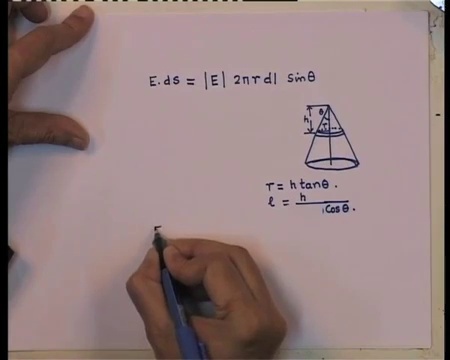 E.ds = |E| 2πrdl sinθ
h θ r
r = h tanθ.
l = h / cosθ.